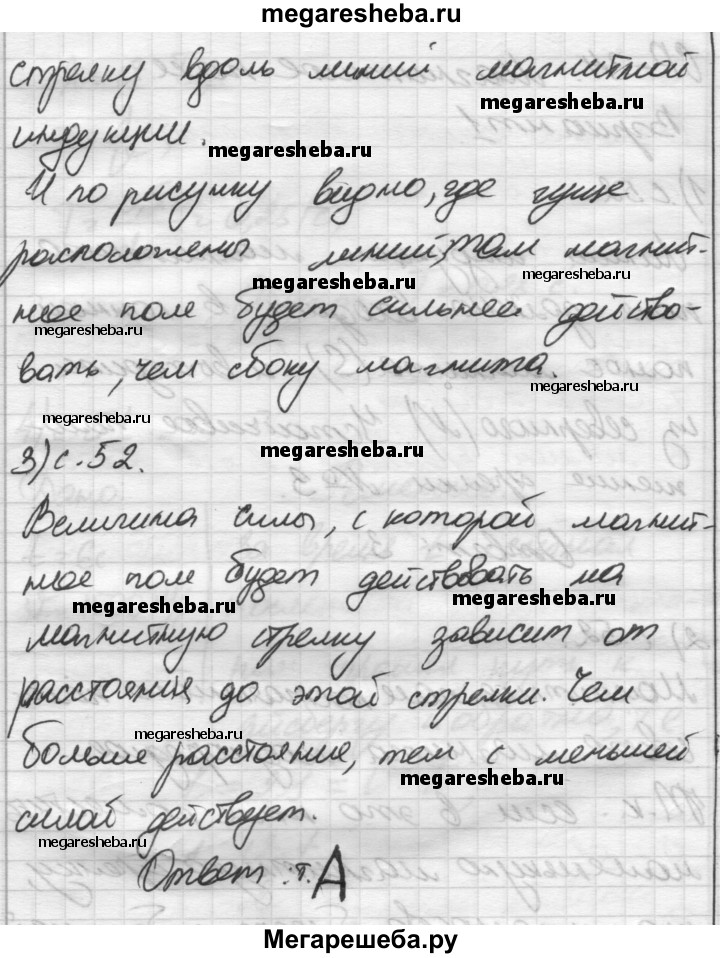 megaresheba.ru
стрелку вдоль линий магнитной
megaresheba.ru
индукции.
megaresheba.ru
И по рисунку видно, где гуще
расположены линий, там магнит-
megaresheba.ru megaresheba.ru
ное поле будет сильнее действо-
megaresheba.ru
вать, чем сбоку магнита.
megaresheba.ru
megaresheba.ru
3) с. 52.
megaresheba.ru
Величина силы, с которой магнит-
ное поле будет действовать на
megaresheba.ru megaresheba.ru
магнитную стрелку зависит от
расстояния до этой стрелки. Чем
megaresheba.ru
больше расстояние, тем с меньшей
megaresheba.ru
силой действует.
megaresheba.ru
Ответ: т. А
megaresheba.ru
Мегарешеба.ру